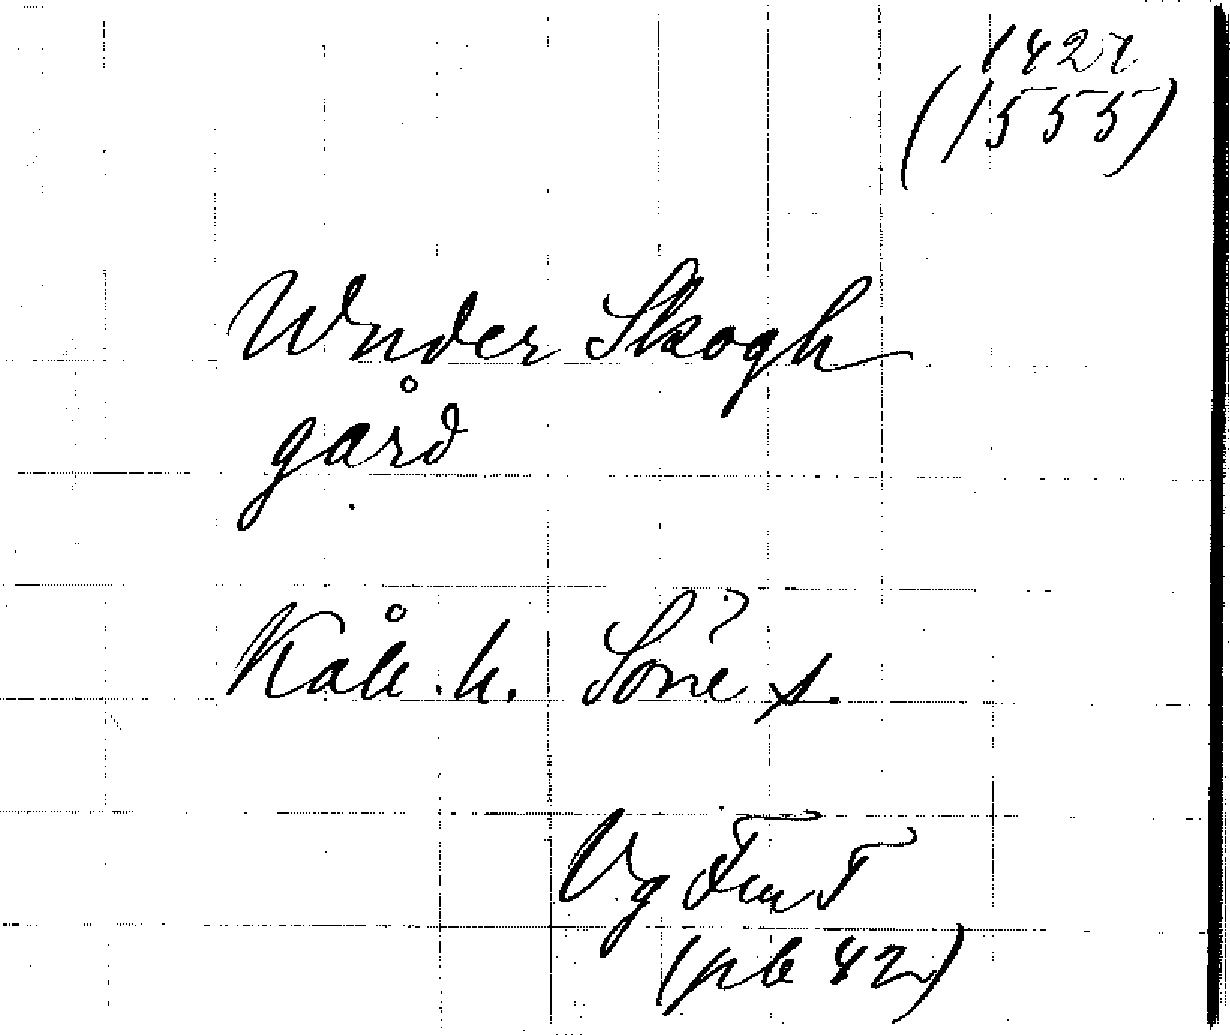 1424
(1555)
Wnder Skogh
gård
Kåll. h. Söne? s.
Vg FmT
(pb 42)